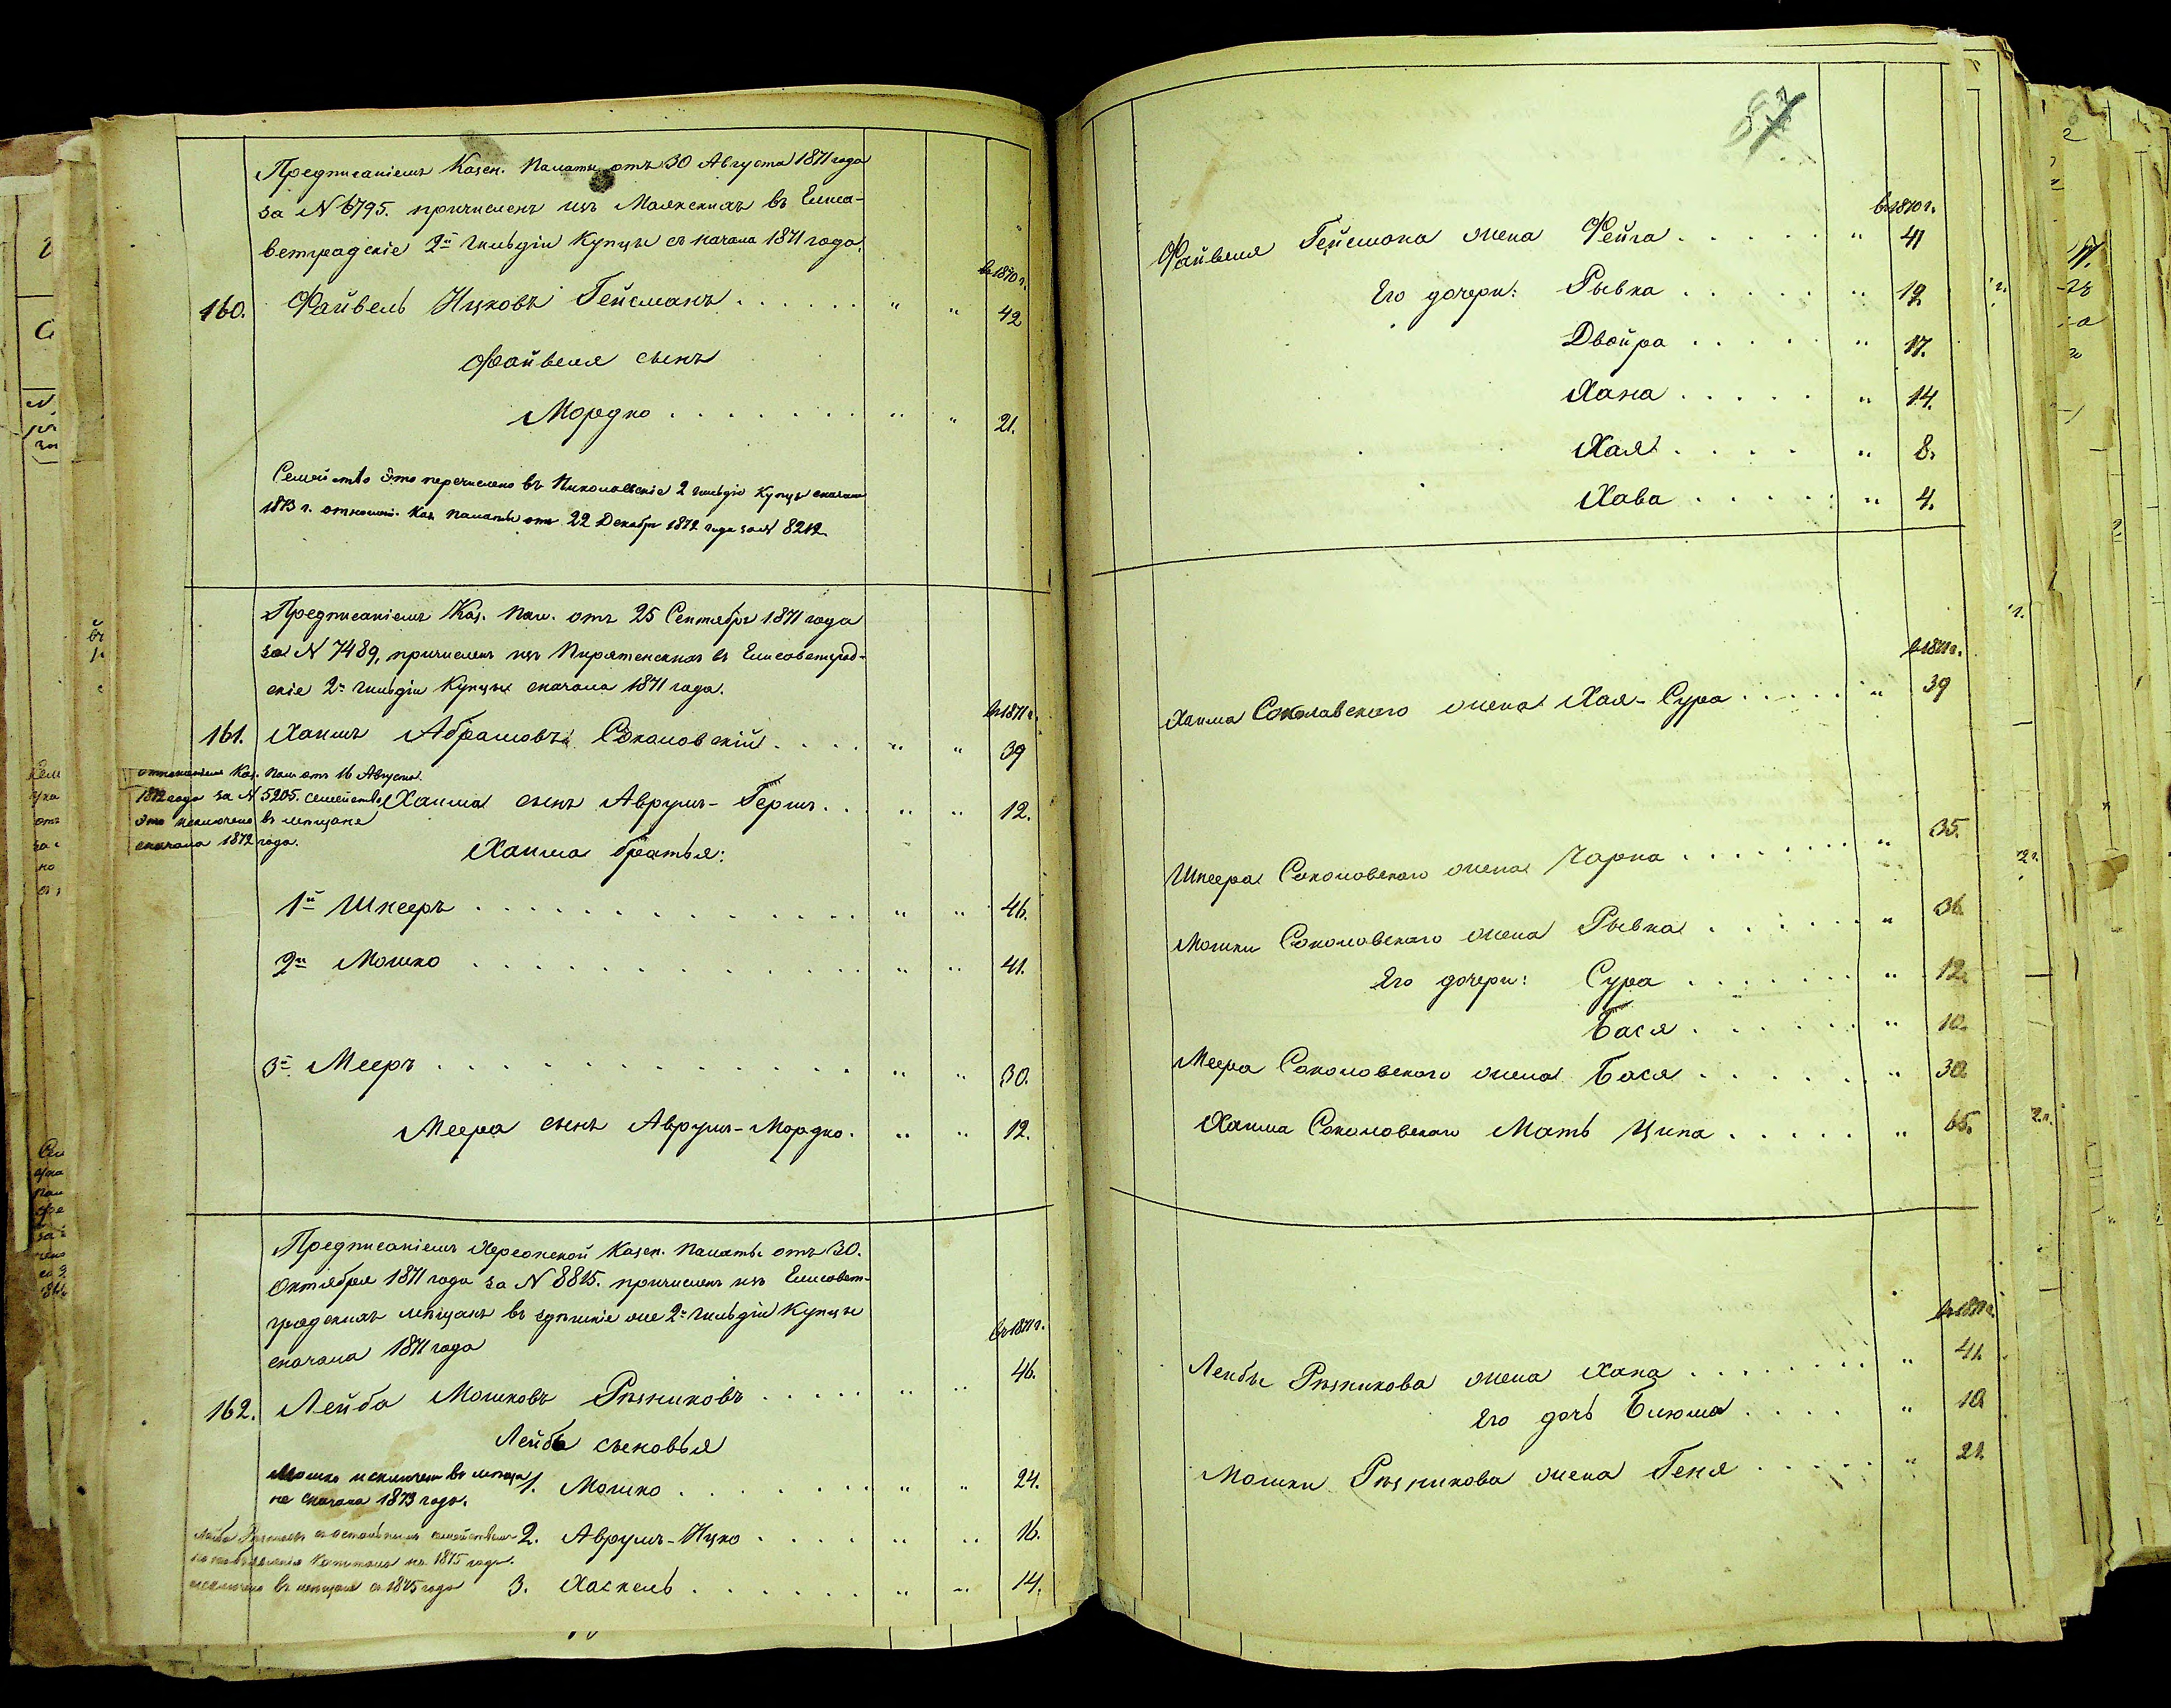 Предписаніемъ Казен. Палаты отъ 30 Августа 1871 года
за № 6795. причисленъ изъ Маякскихъ въ Елиса-
ветградскіе 2й Гильдіи Купцы съ начала 1871 года.
въ 1870 г.
160. Файвель Ицковъ Гейсманъ . . . . . . " " 42
Файвеля сынъ
Мордко . . . . . . . " " 21.
Семейство это перечислено въ Николаевскіе 2 Гильдіи Купцы сначала
1873 г. отношен. Каз. Палаты отъ 22 Декабря 1872 года за № 8212.
Предписаніемъ Каз. Пал. отъ 25 Сентября 1871 года
за № 7489, причисленъ изъ Пирятенскихъ въ Елисоветград-
скіе 2й Гильдіи Купцы сначала 1871 года.
въ 1871 г.
161. Хаимъ Абрамовъ Соколовскій . . . . " " 39
отношеніемъ Каз. Пал. отъ 16 Августа
1872 года за № 5205. семейство
это исключено въ мещане
сначала 1872 года.
Хаима сынъ Аврумъ-Гершъ . . " " 12.
Хаима братья:
1й Шнееръ . . . . . . . . . . . . . . " " 46.
2й Мошко . . . . . . . . . . . . . . " " 41.
3й Мееръ . . . . . . . . . . . . . . " " 30.
Меера сынъ Аврумъ-Мордко. " " 12.
Предписаніемъ Херсонской Казен. Палаты отъ 30.
Октября 1871 года за № 8815. причисленъ изъ Елисовет-
градскихъ мещанъ въ здешніе же 2й Гильдіи Купцы
сначала 1871 года
въ 1871 г.
162. Лейба Мошковъ Резниковъ . . . . . " " 46.
Лейбы сыновья
Мошко исключен въ меща-
не сначала 1873 года.
1. Мошко . . . . . . . " " 24.
Лейба Резниковъ съ остальнымъ семействомъ
по необъявленію Капитала на 1875 годъ.
исключено въ мещане съ 1875 года
2. Аврумъ-Ицко . . . . . " " 16.
3. Хаскель . . . . . . . " " 14.
87
въ 1870 г.
Файвеля Гейсмана жена Фейга . . . . . " 41
Его дочери: Рывка . . . . . " 19.
Двойра . . . . . " 17.
Хана . . . . . " 14.
Хая . . . . . " 8.
Хава . . . . . " 4.
въ 1871 г.
Хаима Соколавского жена Хая-Сура . . . . . " 39
Шнеера Соколовского жена Чарна . . . . . . . " 35.
Мошки Соколовского жена Рывка . . . . . . " 36.
Его дочери: Сура . . . . . . " 12.
Бася . . . . . . " 10.
Меера Соколовского жена Бася . . . . . . " 30.
Хаима Соколовского Мать Ципа . . . . . " 65.
въ 1871 г.
Лейбы Резникова жена Хана . . . . . . . " 41.
Его дочь Блюма . . . . " 10.
Мошки Резникова жена Геня . . . . . " 21.